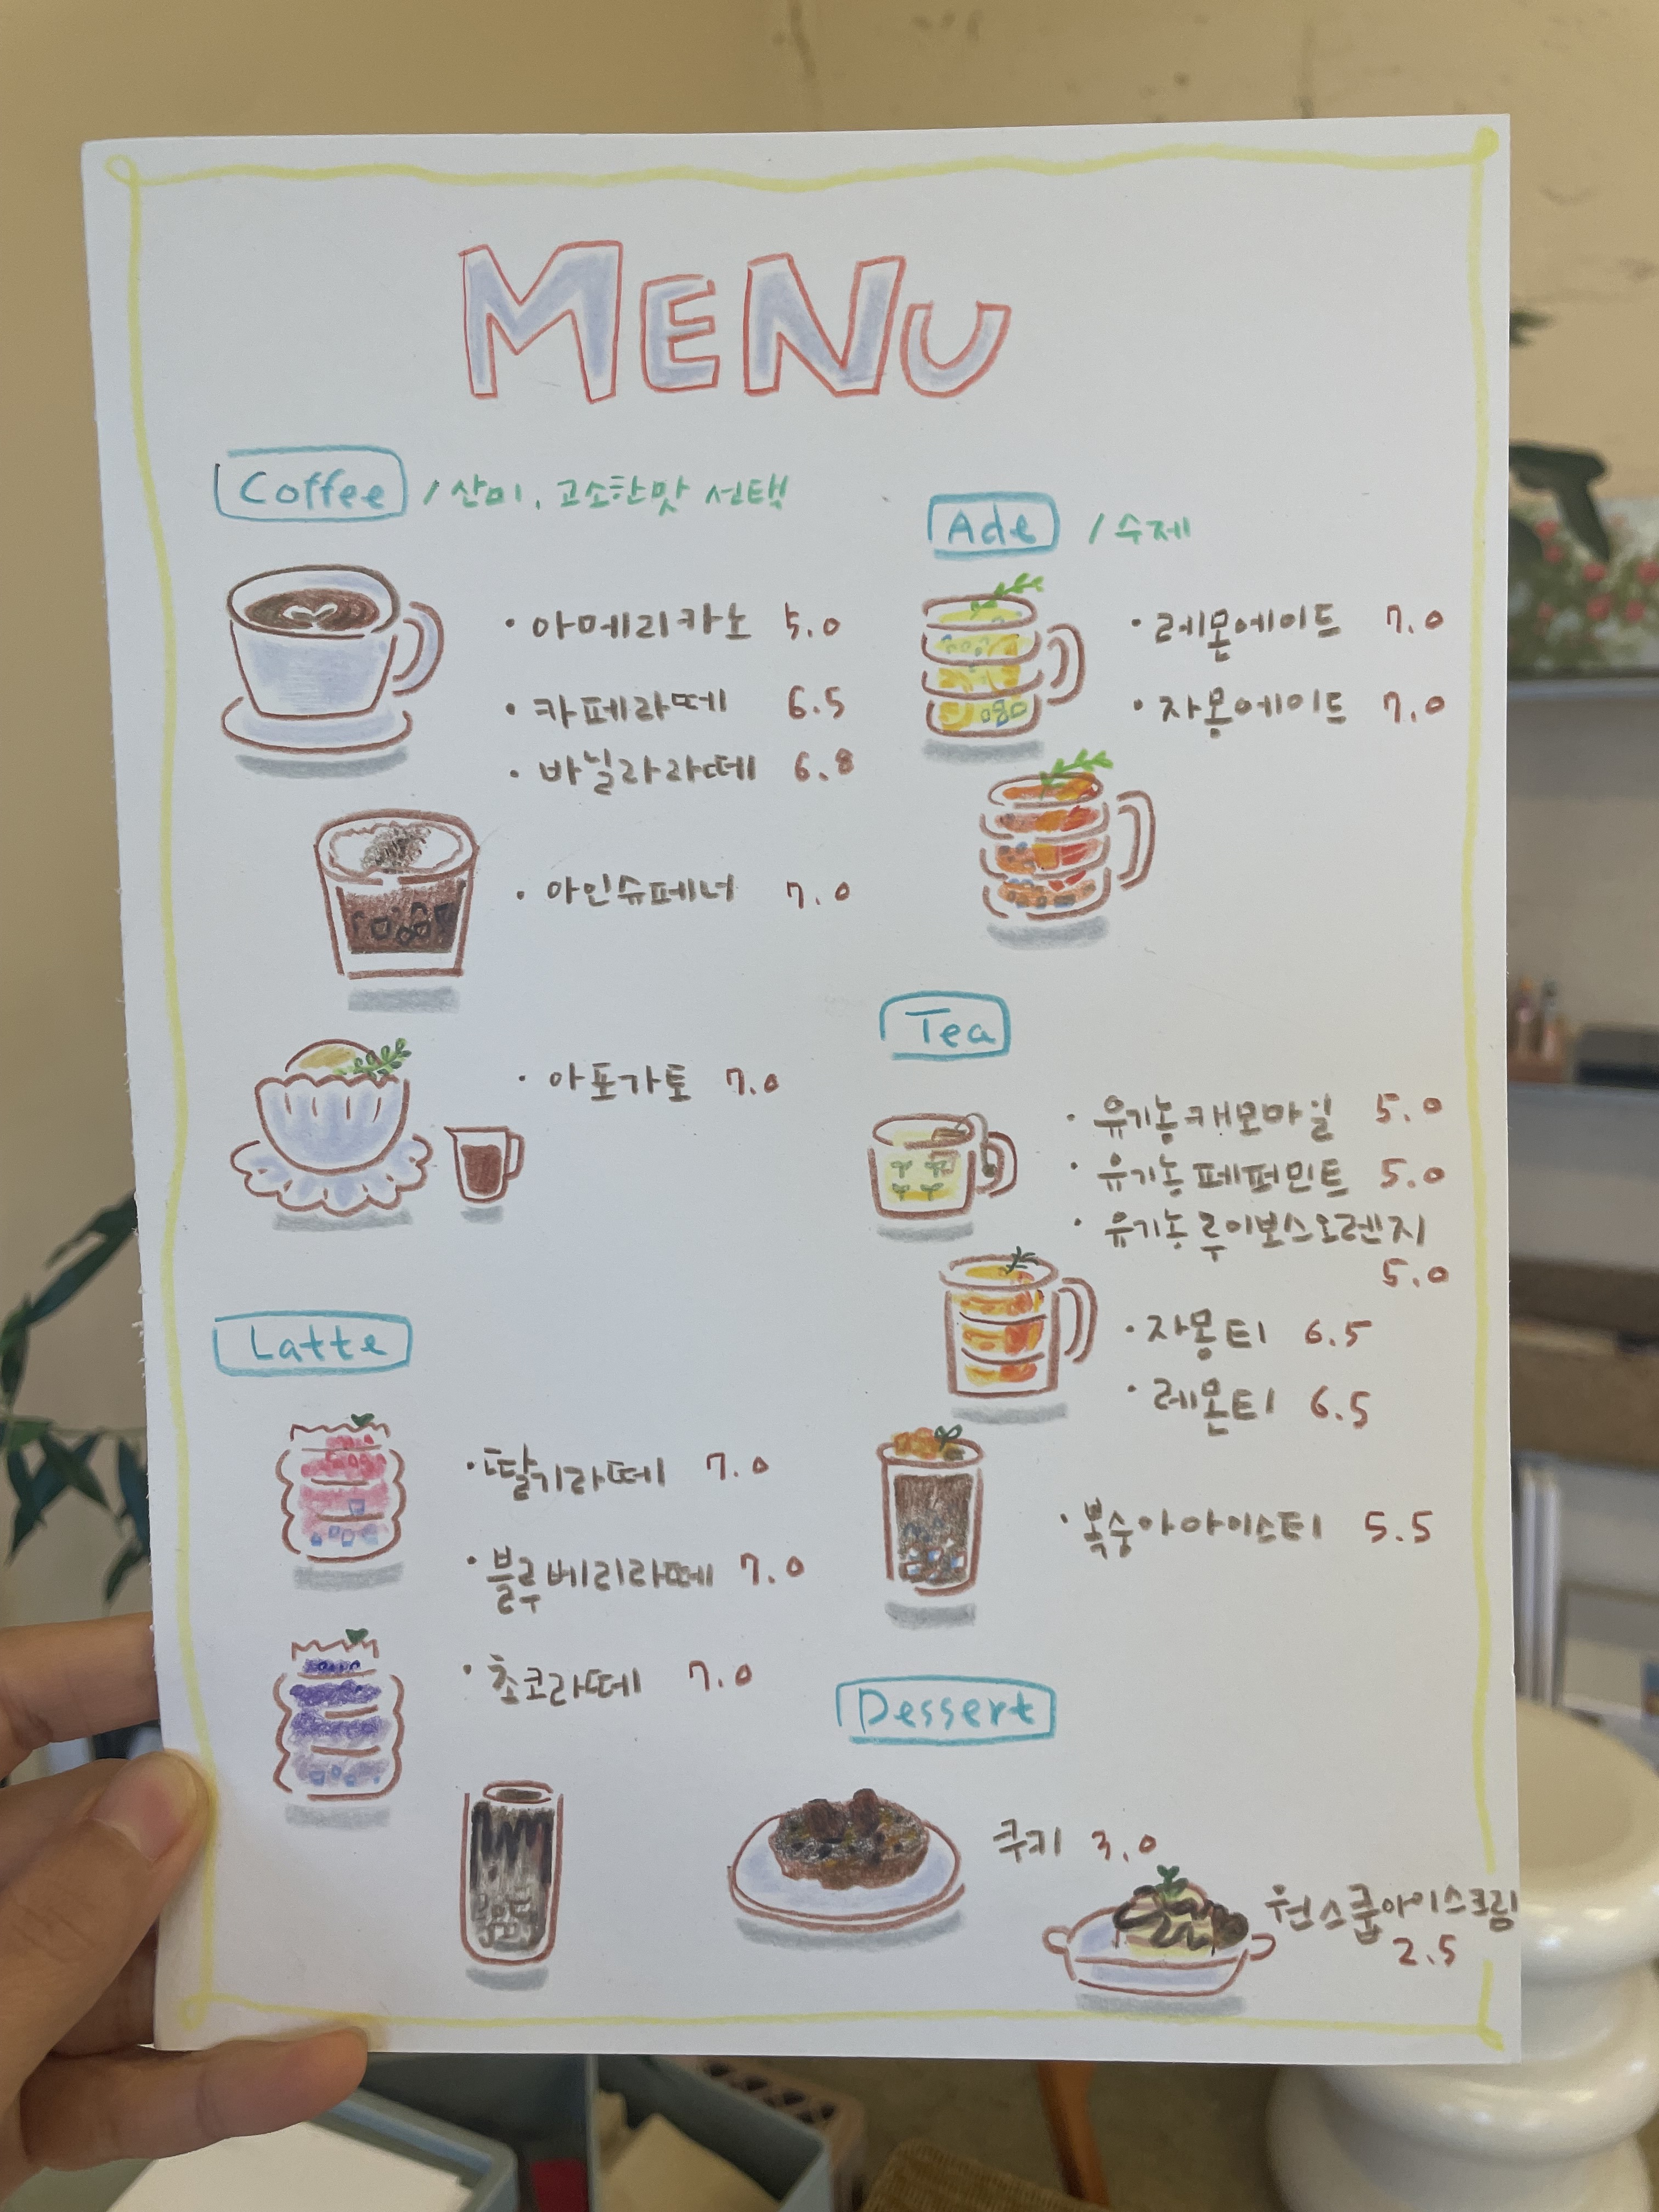 MENU
Coffee / 산미, 고소한맛 선택
· 아메리카노 5.0
· 카페라떼 6.5
· 바닐라라떼 6.8
· 아인슈페너 7.0
· 아포가토 7.0
Latte
· 딸기라떼 7.0
· 블루베리라떼 7.0
· 초코라떼 7.0
Ade / 수제
· 레몬에이드 7.0
· 자몽에이드 7.0
Tea
· 유기농캐모마일 5.0
· 유기농페퍼민트 5.0
· 유기농루이보스오렌지
5.0
· 자몽티 6.5
· 레몬티 6.5
· 복숭아아이스티 5.5
Dessert
쿠키 3.0
원스쿱아이스크림
2.5